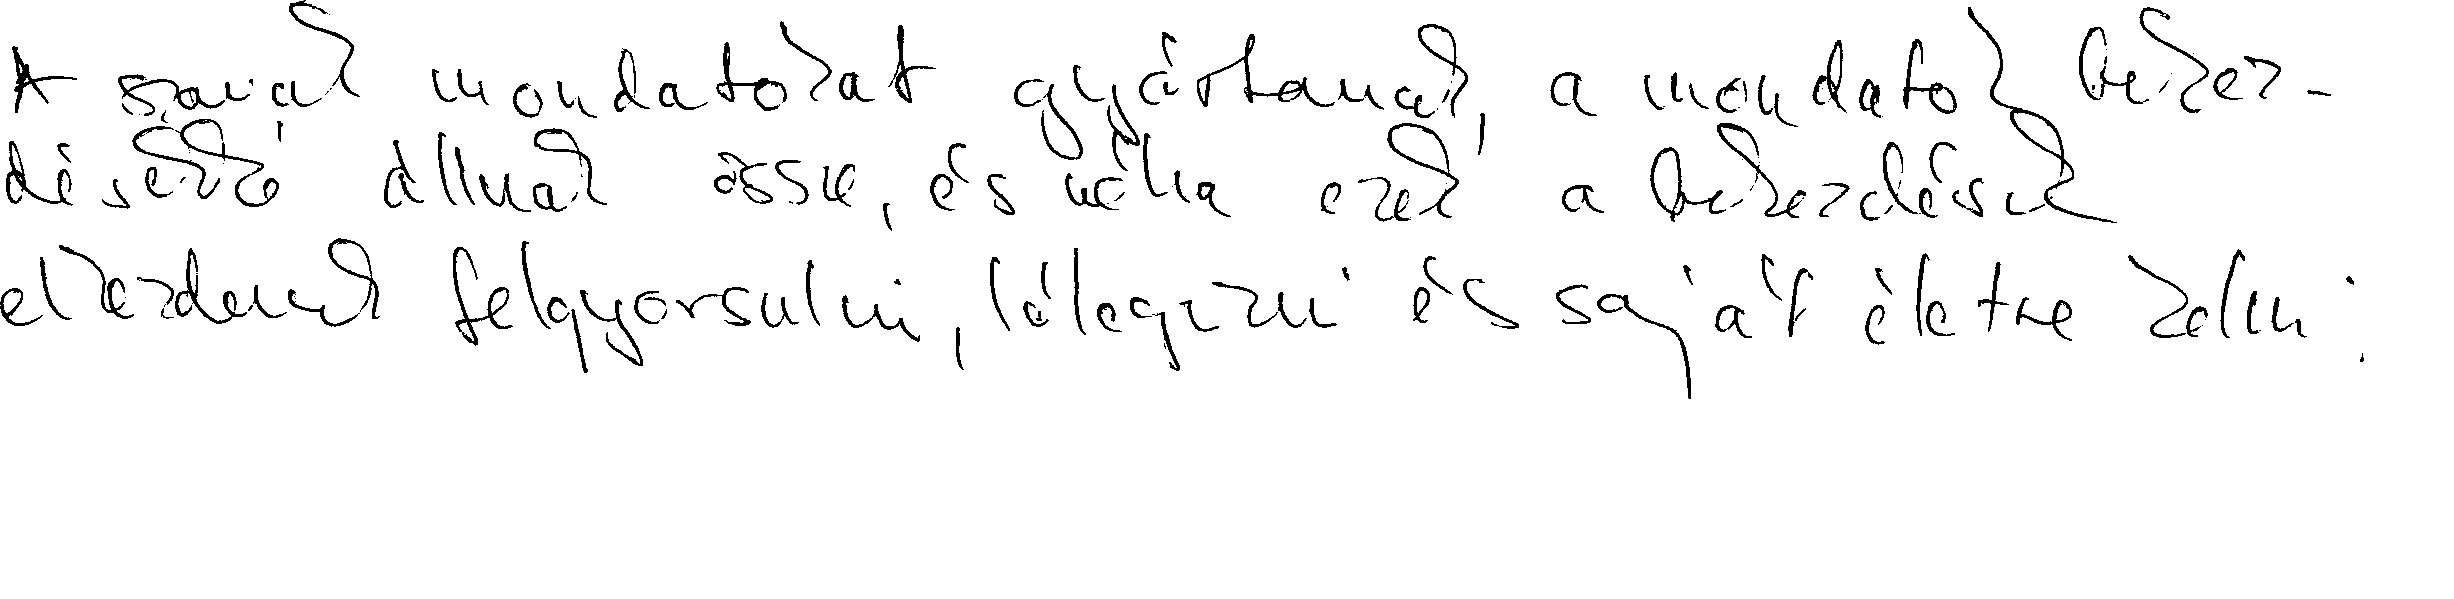 A szavak mondatokat gyártanak, a mondatok bekez-
désekké állnak össze, és néha ezek a bekezdések
elkezdenek felgyorsulni, lélegezni és saját életre kelni.